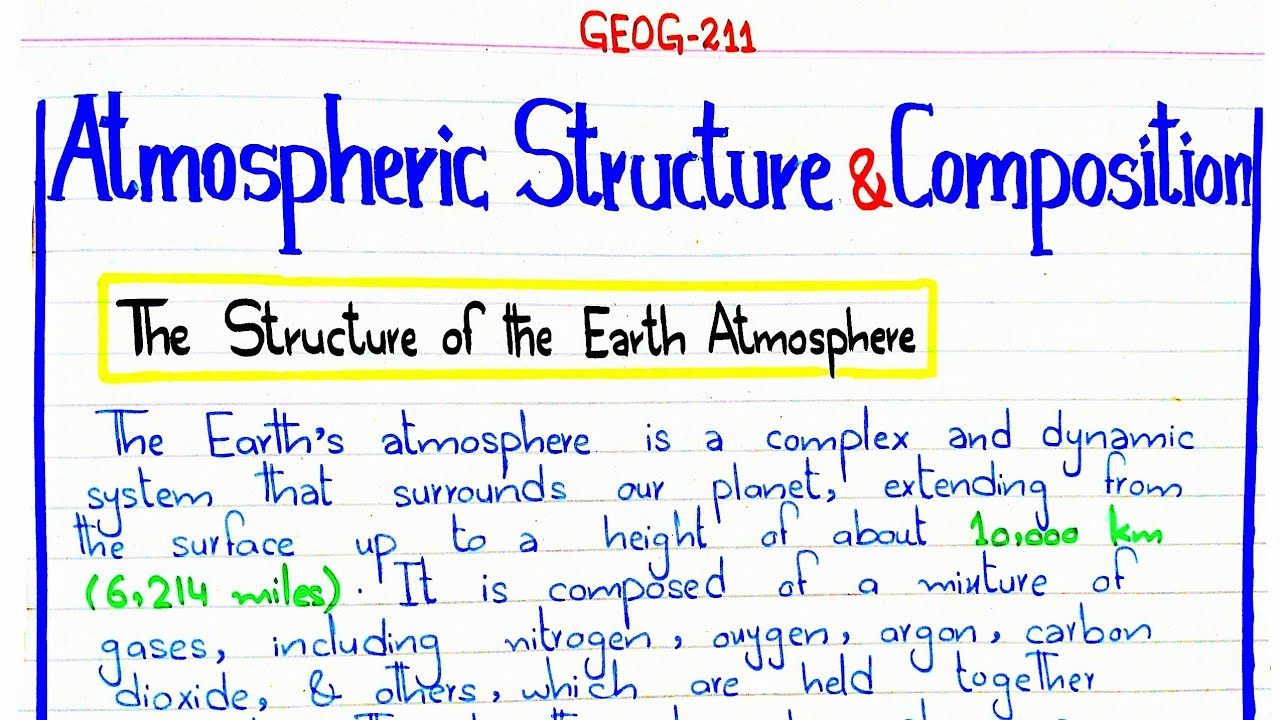 GEOG-211
Atmospheric Structure & Composition
The Structure of the Earth Atmosphere
The Earth's atmosphere is a complex and dynamic
system that surrounds our planet, extending from
the surface up to a height of about 10,000 km
(6,214 miles). It is composed of a mixture of
gases, including nitrogen, oxygen, argon, carbon
dioxide, & others, which are held together